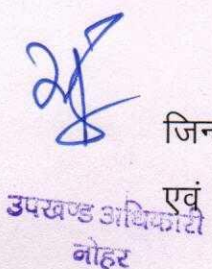 जिन
एवं
उपखण्ड अधिकारी
नोहर